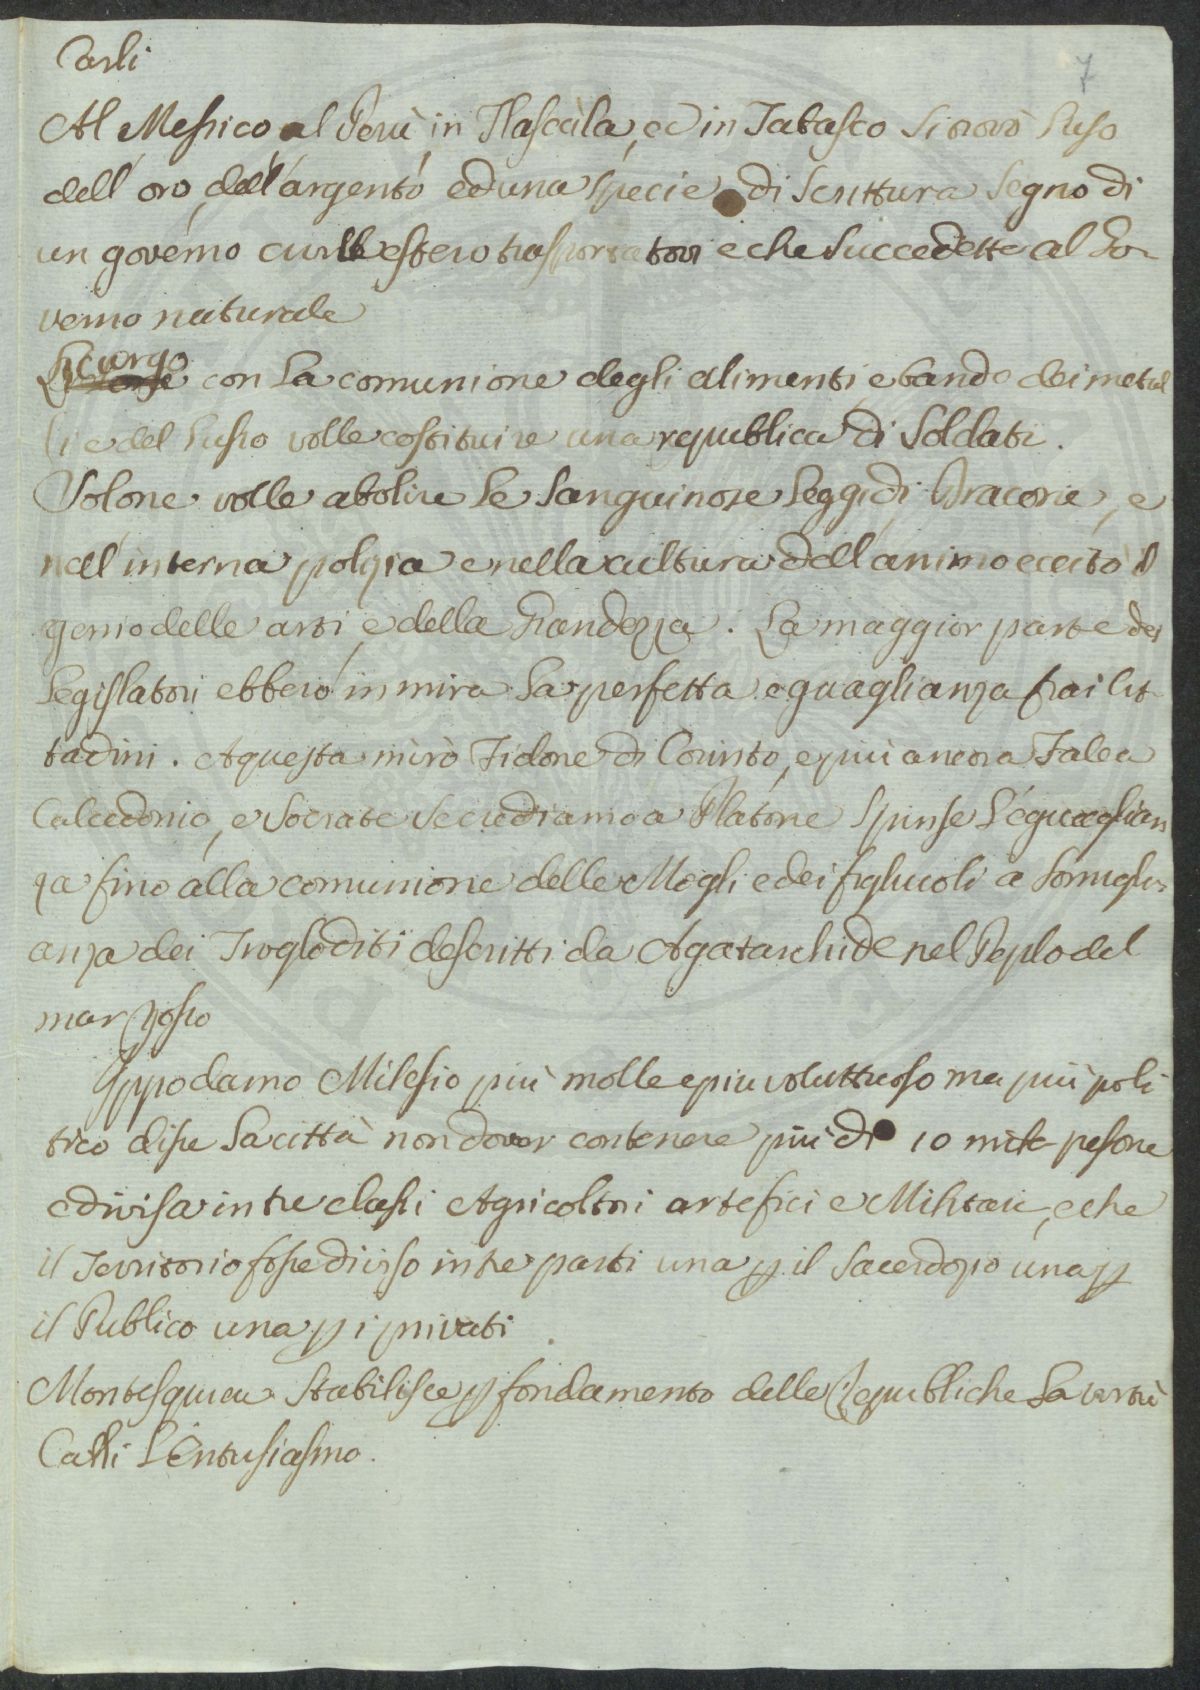 Carli
7
Al Messico al Perù, in Tlascàla, ed in Tabasco si trovò l'uso
dell'oro, dell'argento, ed una spécie di scrittura segno di
un governo civile estero trasportatovi e che succedette al Go-
verno naturale
Licurgo con la comunione degli alimenti e bando dei metal
li e del lusso volle costituire una republica di soldati.
Solone volle abolire le sanguinose leggi di Dracone, e
nell'interna polizia e nella cultura dell'animo eccitò il
genio delle arti, e della Grandezza. La maggior parte dei
legislatori ebbero in mira la perfetta eguaglianza fra i Cit-
tadini. A questa mirò Fidone di Corinto, e più ancora Falea
Calcedonio, e Socrate se crediamo a Platone spinse l'eguaglian
za fino alla comunione delle Mogli e dei figliuoli a somigli-
anza dei Trogloditi descritti da Agatarchide nel Peplo del
mar Rosso
Ippodamo Milesio più molle e più voluttuoso ma più poli
tico disse la città non dover contenere più di 10 mila persone
e divisa in tre classi Agricoltori artefici e Militari, e che
il Territorio fosse diviso in tre parti una p il sacerdozio una p
il Publico una p i privati
Montesquieu stabilisce p fondamento delle Republiche la virtù
Carli l'Entusiasmo.